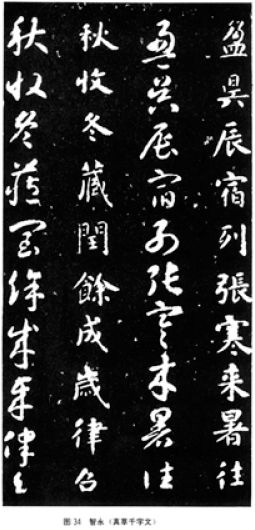 盈昃辰宿列張寒来暑往
盈昃辰宿列張寒来暑往
秋收冬藏閏餘成歲律召
秋收冬藏閏餘成歲律召
图 34 智永《真草千字文》